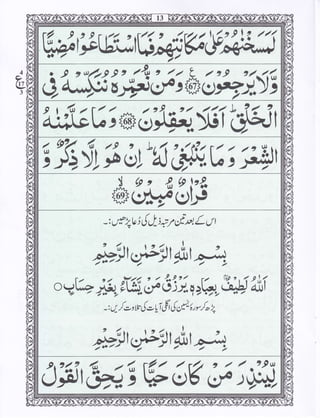 13
لَمَسَخْنٰهُمْ عَلٰى مَكَانَتِهِمْ فَمَا اسْتَطَاعُوْا مُضِيًّا
وَّلَا يَرْجِعُوْنَ ﴿67﴾ وَمَنْ نُّعَمِّرْهُ نُنَكِّسْهُ فِى
الْخَلْقِ ؕ اَفَلَا يَعْقِلُوْنَ ﴿68﴾ وَمَا عَلَّمْنٰهُ
الشِّعْرَ وَمَا يَنْۢبَغِىْ لَهٗ ؕ اِنْ هُوَ اِلَّا ذِكْرٌ وَّ
قُرْاٰنٌ مُّبِيْنٌ ﴿69﴾
اس کے بعد تین مرتبہ ذیل کی دُعا پڑھیں :۔
بِسْمِ اللّٰهِ الرَّحْمٰنِ الرَّحِيْمِ
اَللّٰهُ لَطِيْفٌۢ بِعِبَادِهٖ يَرْزُقُ مَنْ يَّشَآءُ بِغَيْرِ حِسَابٍ ○
پڑھ کر سورۂ یٰسین کی اگلی آیات کی تلاوت کریں :۔
بِسْمِ اللّٰهِ الرَّحْمٰنِ الرَّحِيْمِ
لِّيُنْذِرَ مَنْ كَانَ حَيًّا وَّ يَحِقَّ الْقَوْلُ